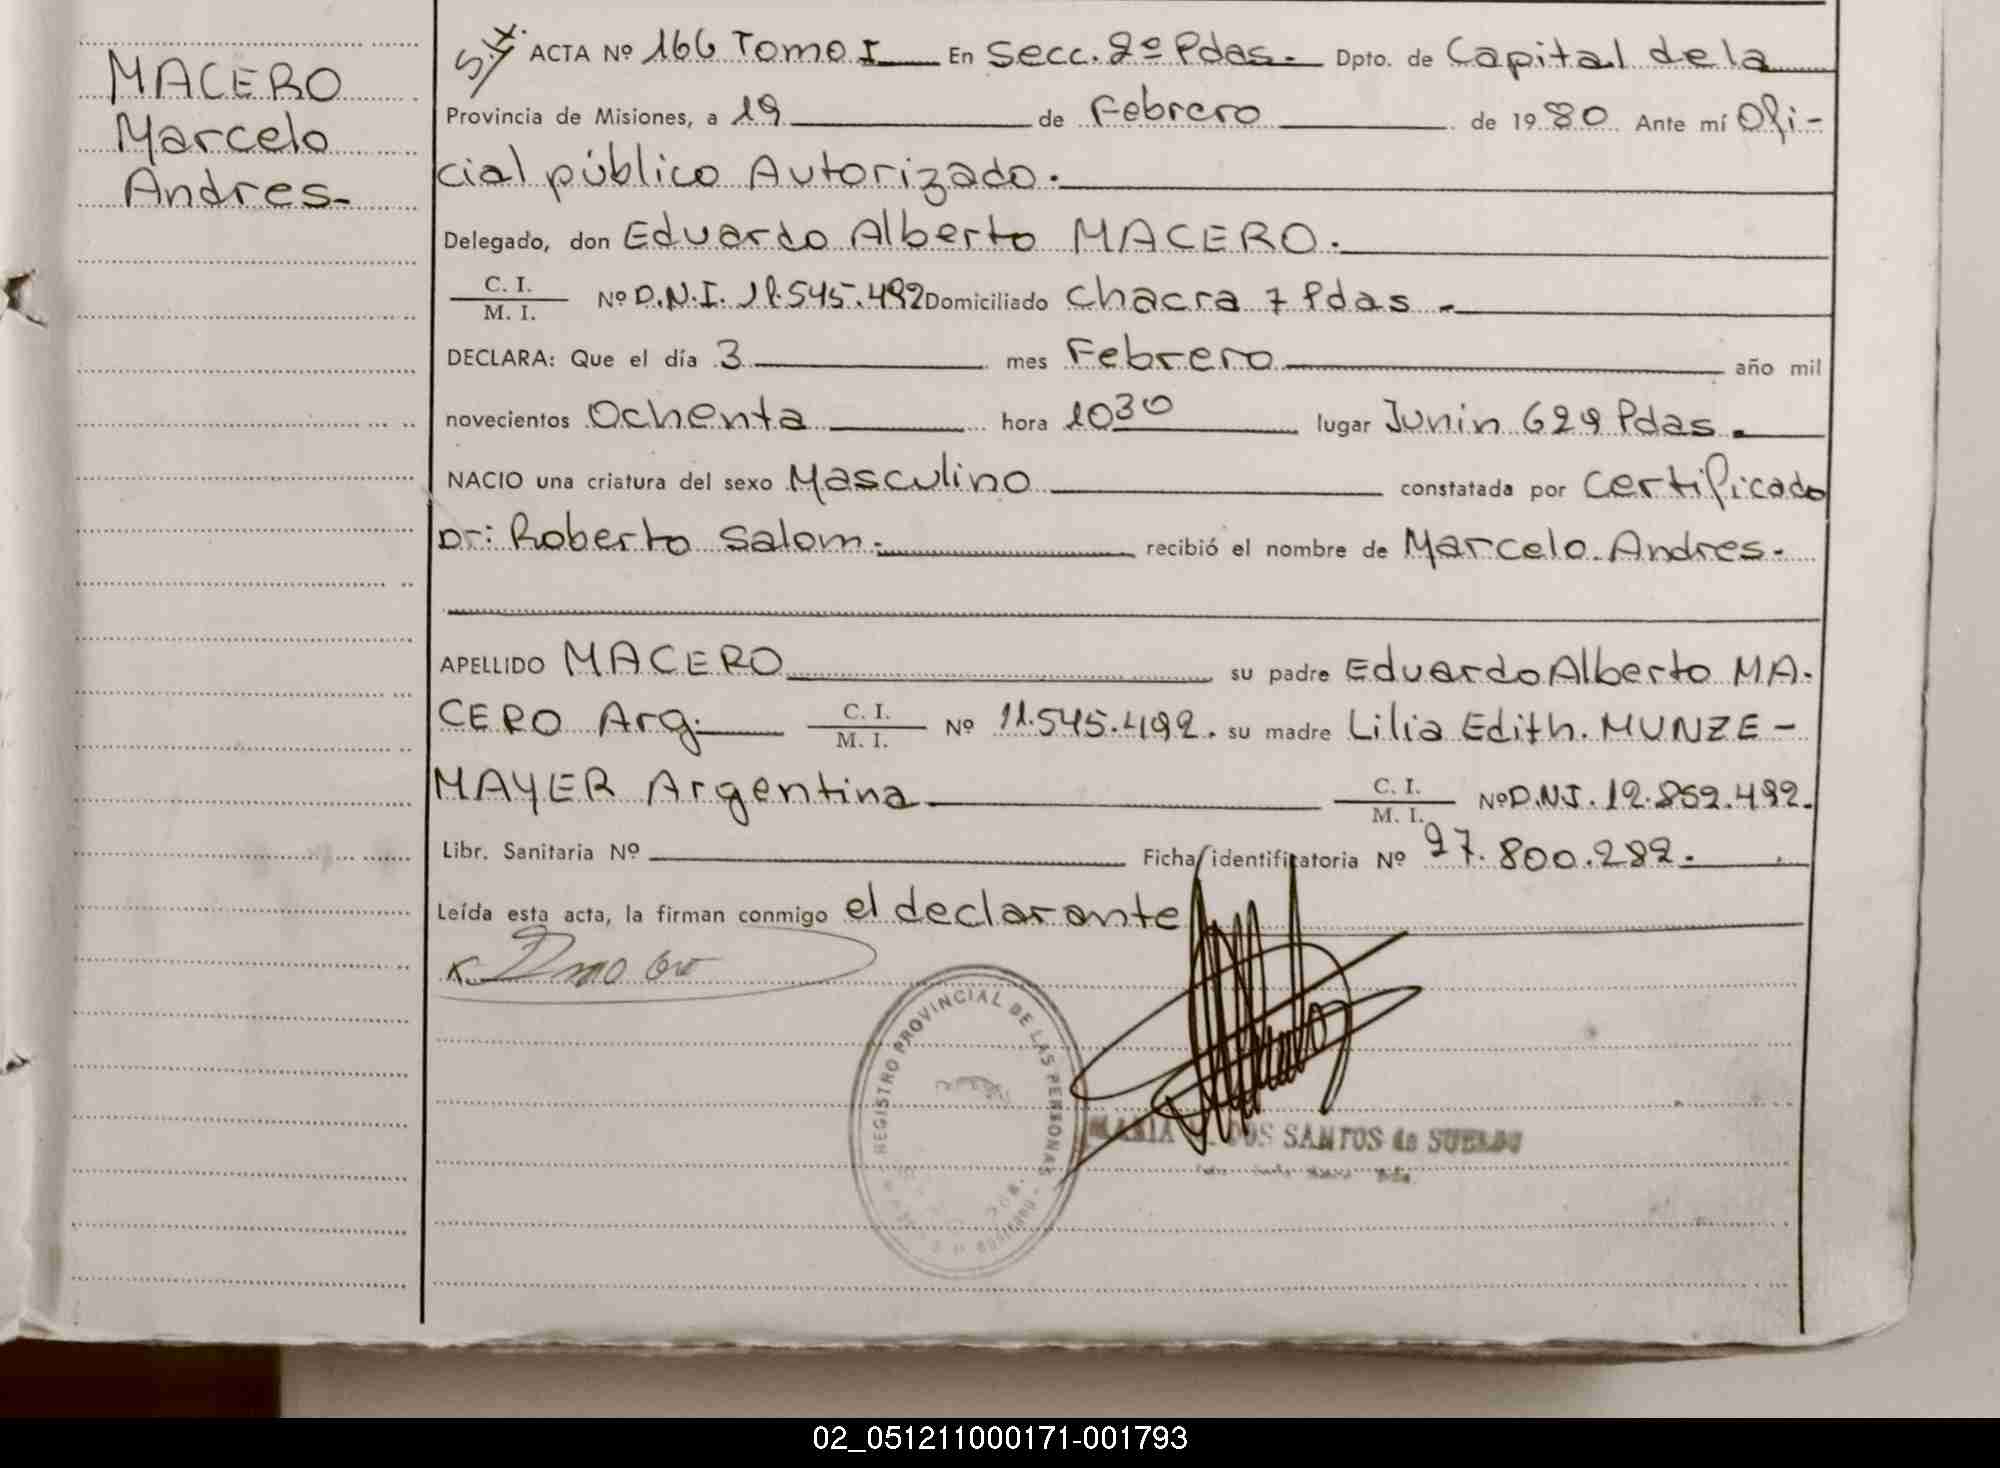 MACERO
Marcelo
Andres-
ACTA Nº 166 Tomo I En Secc. 2º Pdas. Dpto. de Capital de la
Provincia de Misiones, a 19 de Febrero de 1980 Ante mí Ofi-
cial público Autorizado.
Delegado, don Eduardo Alberto MACERO.
C. I.
M. I.
Nº D.N.I. 11.545.492 Domiciliado Chacra 7 Pdas.
DECLARA: Que el día 3 mes Febrero año mil
novecientos Ochenta hora 1030 lugar Junin 629 Pdas.
NACIO una criatura del sexo Masculino constatada por Certificado
Dr: Roberto Salom. recibió el nombre de Marcelo Andres.
APELLIDO MACERO su padre Eduardo Alberto MA-
CERO Arg. C. I. Nº 11.545.492. su madre Lilia Edith. MUNZE-
M. I.
MAYER Argentina C. I. Nº D.N.I. 12.852.492.
M. I.
Libr. Sanitaria Nº Ficha identificatoria Nº 27.800.282.
Leída esta acta, la firman conmigo el declarante
REGISTRO PROVINCIAL DE LAS PERSONAS
DOS SANTOS de SUELDO
02_051211000171-001793